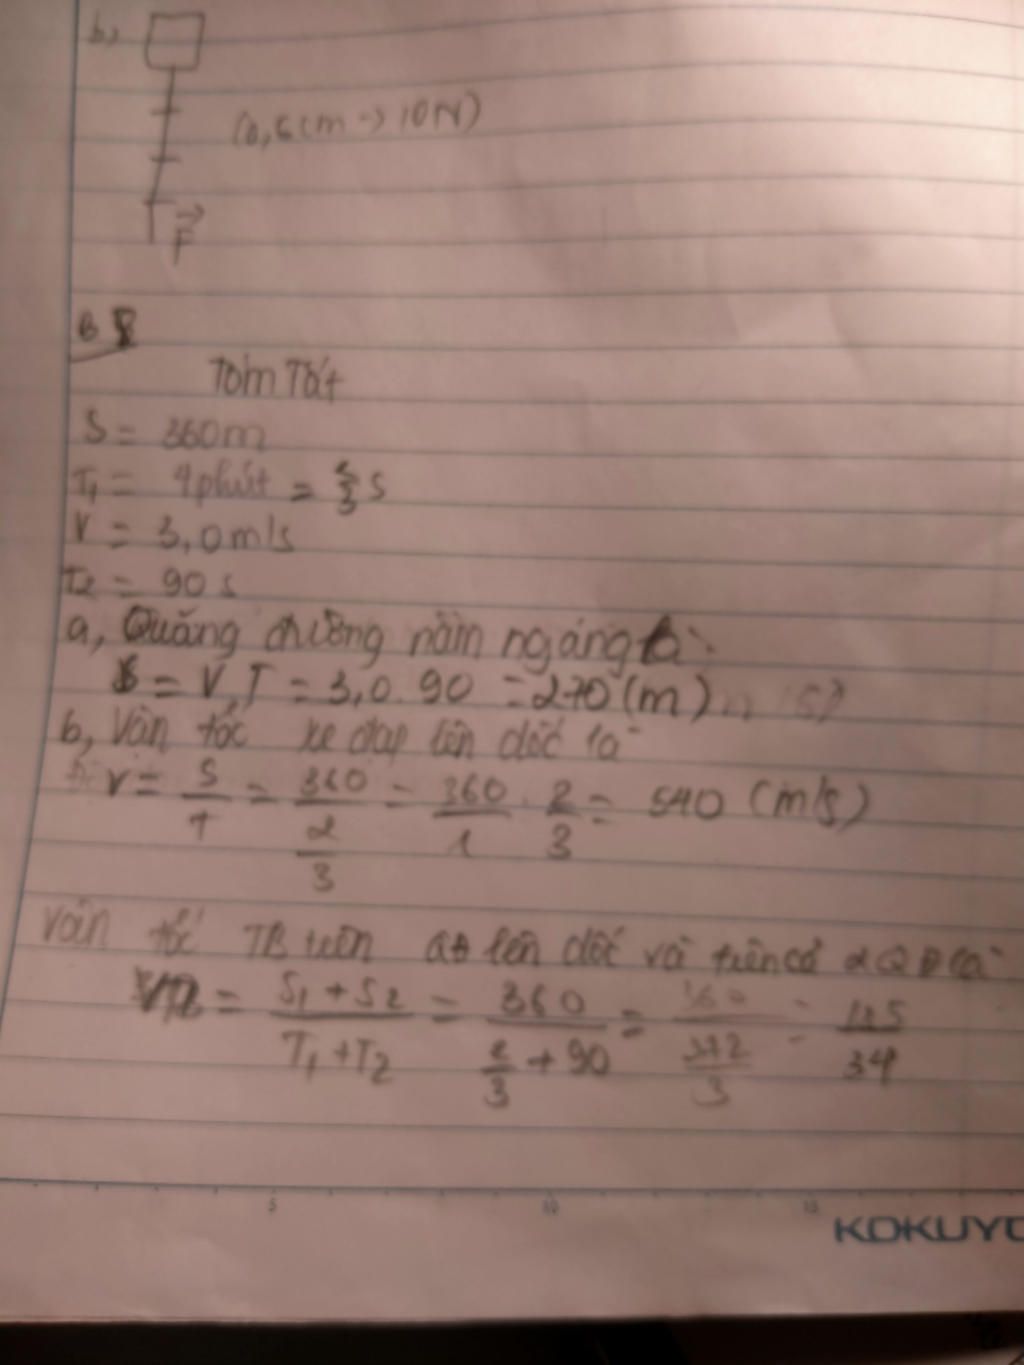 b)
(0,6cm → 10N)
F
B 8
Tóm Tắt
S = 360m
T₁ = 4 phút = 2/3 s
V = 3,0 m/s
T2 = 90 s
a, Quãng đường nằm ngang là:
S = V.T = 3,0.90 = 270 (m)
b, Vận tốc xe đạp lên dốc là
V = S/T = 360/(2/3) = 360/1 . 2/3 = 540 (m/s)
Vận tốc TB trên lên dốc và trên cả 2 Q Đ là
= (S₁ + S2)/(T₁ + T2) = 360/(2/3 + 90) = =
5 10 15
KOKUYO